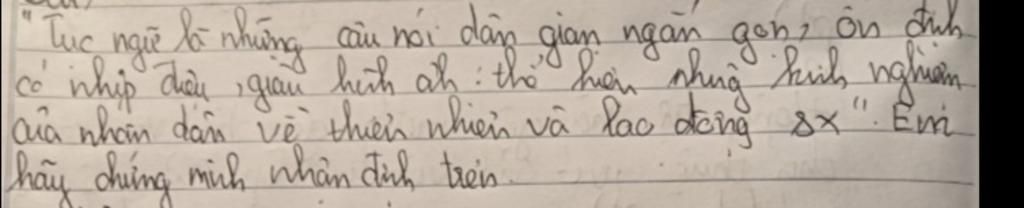 "Tục ngữ là những câu nói dân gian ngắn gọn, ổn định
có nhịp điệu, giàu hình ảh: thể hiện những kinh nghiệm
của nhân dân về thiên nhiên và lao động sx". Em
hãy chứng minh nhận định trên.